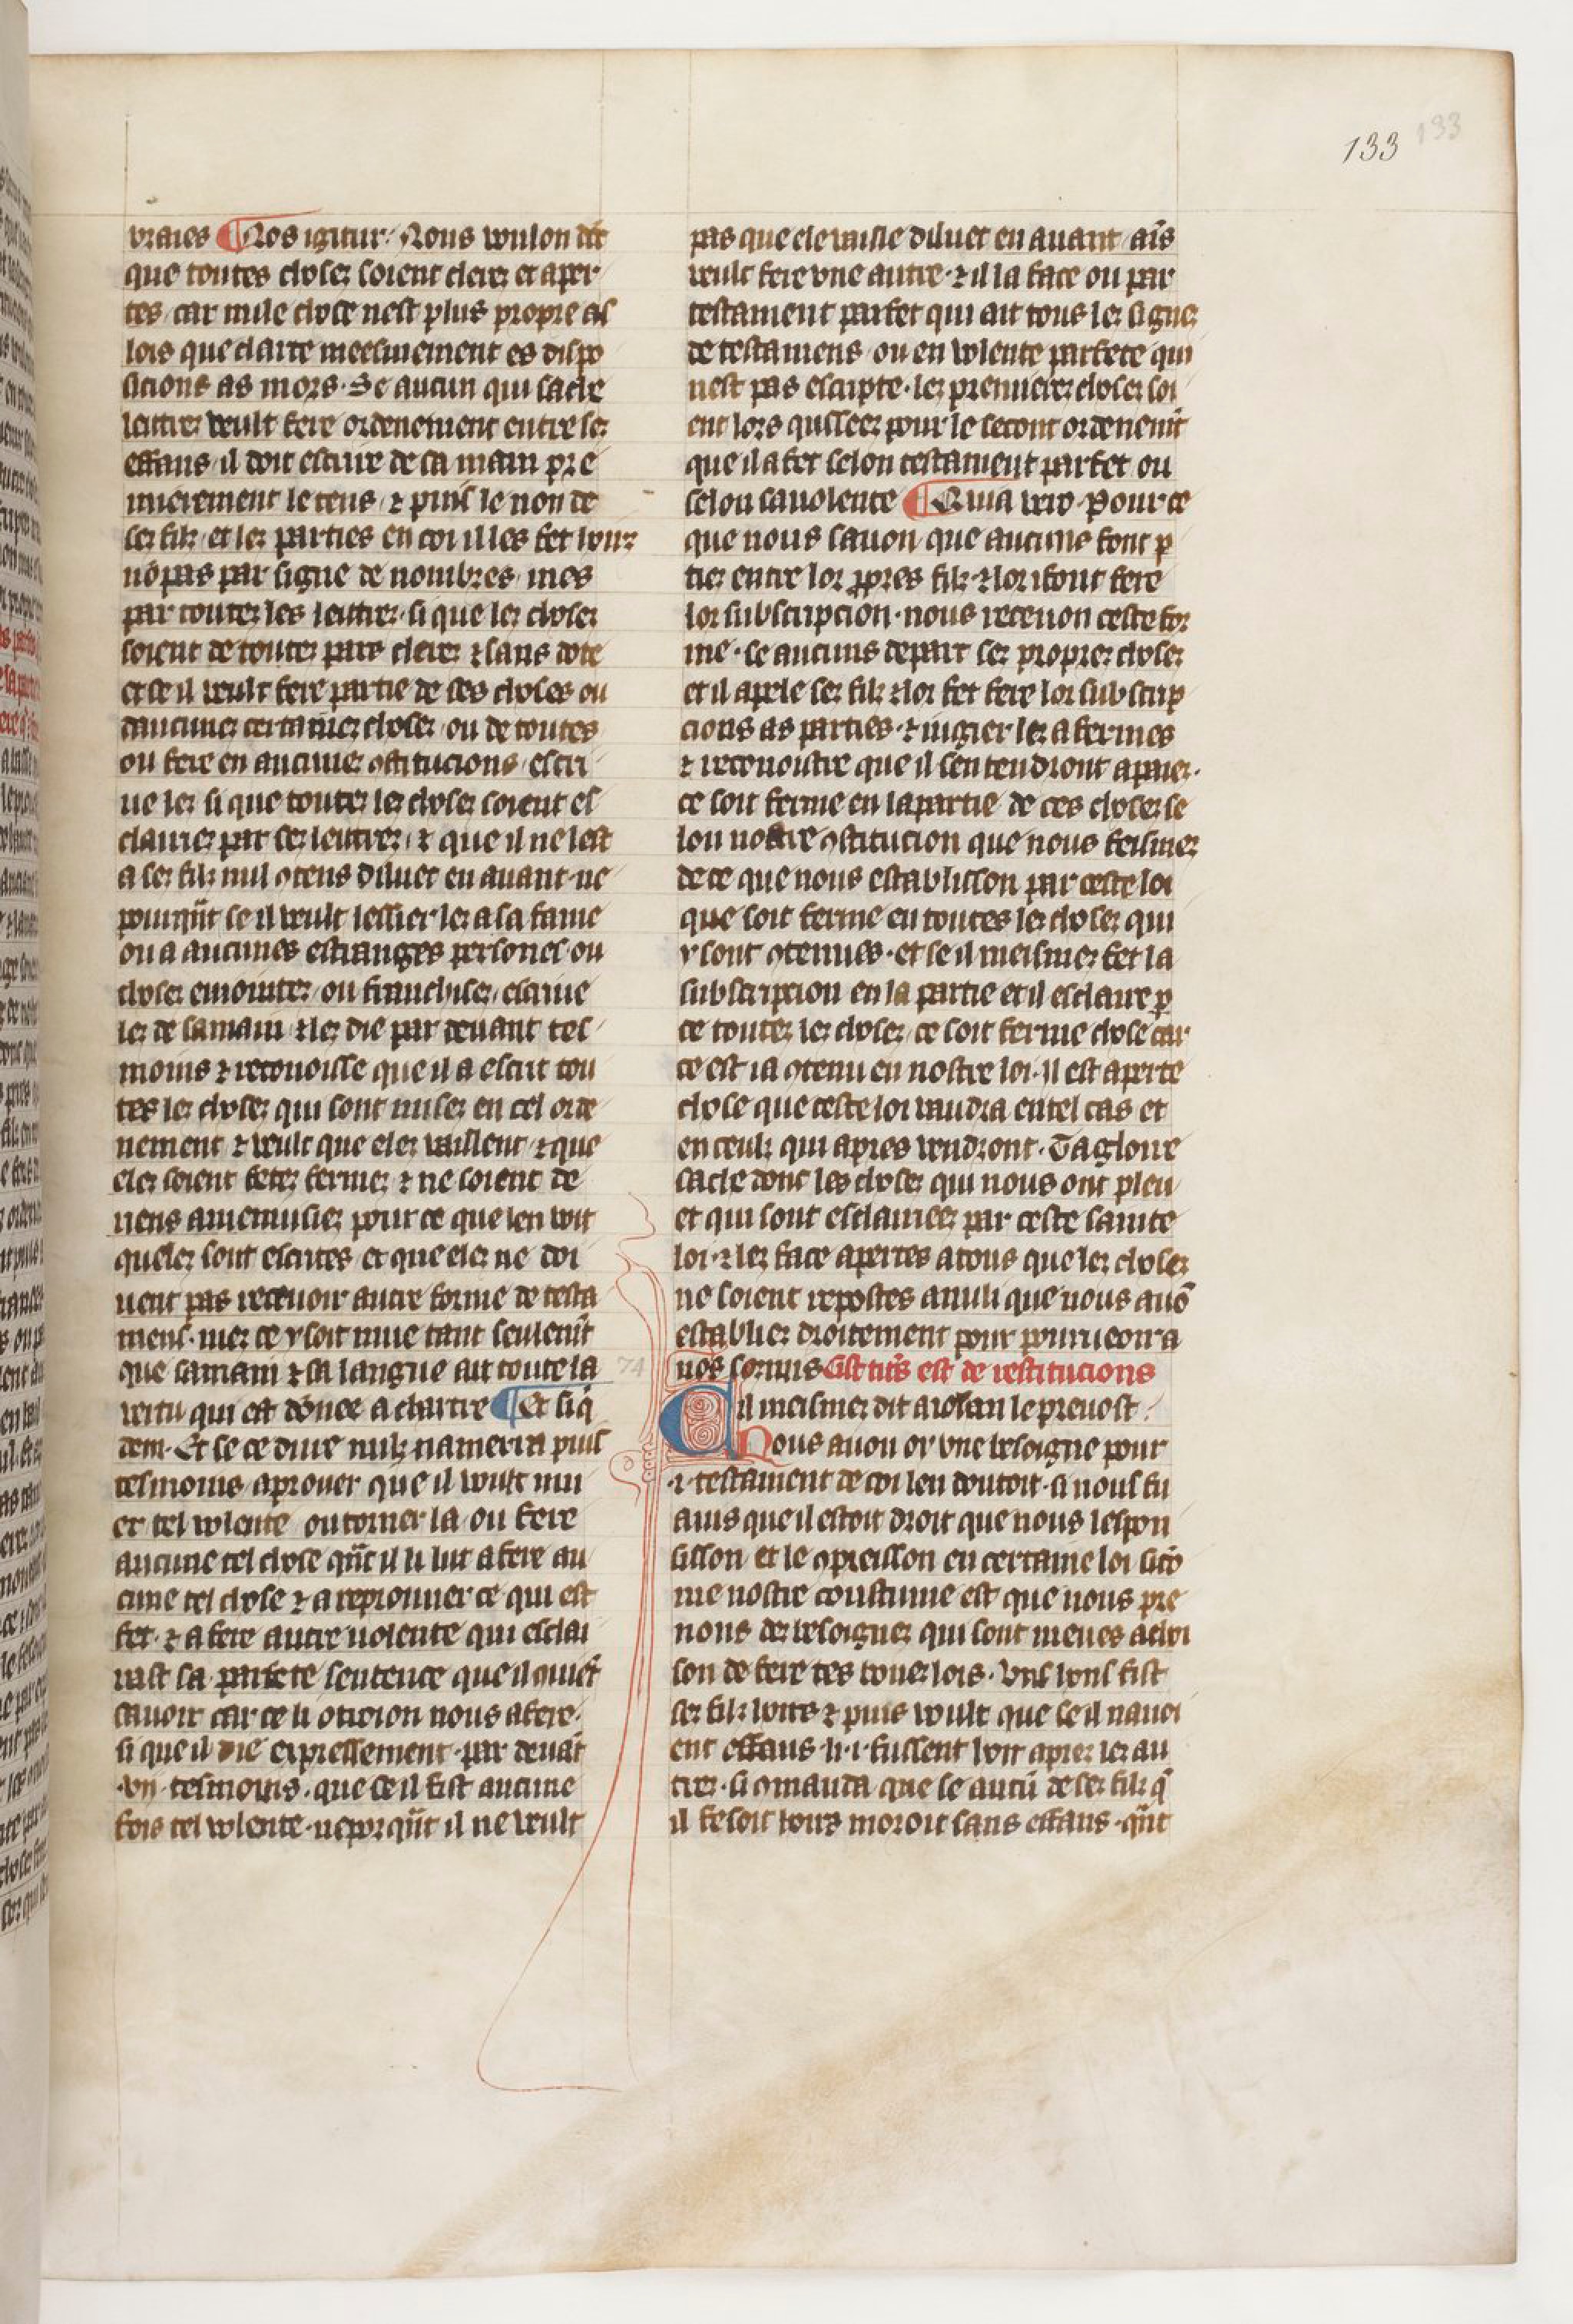 133 133
vraies ¶ Nos igitur· Nous voulon dit
que toutes choses soient cleres et aper
tes car nule chose nest plus propre as
lois que clarte meesmement es dispo
sicions as mors· Se aucun qui sache
lettres veult fere ordenement entre ses
effans il doit escrire de sa main pre
mierement le tens ⁊ puis le non de
ses filz et les parties en coi il les fet hoirs
nō pas par signe de nombres mes
par toutes les lettres si que les choses
soient de toutes pars cleres ⁊ sans dote
et se il veult fere partie de ses choses ou
daucunes certaines choses ou de toutes
ou fere en aucunes ꝯstitucions escri
ue les si que toutes les choses soient es
clairies par ses lettres ⁊ que il ne lest
a ses filz nul ꝯtens diluec en auant ne
pourqn̄t se il veult lessier les a sa fame
ou a aucunes estranges persones ou
choses emointes ou franchises escriue
les de sa main ⁊ les die par deuant tes
moins ⁊ reconoisse que il a escrit tou
tes les choses qui sont mises en cel orde
nement ⁊ veult que eles vaillent ⁊ que
eles soient fetes fermes ⁊ ne soient de
riens amenuisies pour ce que len voit
queles sont escrites et que eles ne doi
uent pas receuoir autre forme de testa
mens· mes ce y soit mue tant seulemn̄t
que sa main ⁊ sa langue ait toute la
vertu qui est dōnee a chartre ¶ Et si q̄
dem· Et se ce diue nulz namerra puis
tesmoins a prouer que il voult mu
er tel volente ou torner la ou fere
aucune tel chose qn̄t il li lut a fere au
cune tel chose ⁊ a reprouuer ce qui est
fet· ⁊ a fere autre uolente qui esclai
rast sa parfete sentence que il ꝯuiēt
sauoir car ce li otroion nous a fere·
si que il die expressement par deuāt
·vij· tesmoins· que se il fist aucune
fois tel volente neporqn̄t il ne veult
pas que ele vaille diluec en auant ains
veult fere vne autre· ⁊ il la face ou par
testament parfet qui ait tous les signes
de testamens ou en volente parfete qui
nest pas escripte· les premieres choses soi
ent lors quassees pour le secont ordenemn̄t
que il a fet selon testament parfet ou
selon sa uolente ¶ Quia vero· Pour ce
que nous sauon que aucuns font ꝑ
ties entre lor ꝓpres filz ⁊ lor i font fere
lor subscripcion· nous receuon ceste for
me· se aucuns depart ses propres choses
et il apele ses filz ⁊ lor fet fere lor subscrip
cions as parties ⁊ iugier les a fermes
⁊ reconoistre que il sen tendront a paiez·
ce soit ferme en la partie de ces choses se
lon nostre ꝯstitucion que nous feismes
de ce que nous establisson par ceste loi
que soit ferme en toutes les choses qui
y sont ꝯtenues· et se il meismes fet la
subscripcion en la partie et il esclaire ꝑ
ce toutes les choses ce soit ferme chose car
ce est ia ꝯtenu en nostre loi· Il est aperte
chose que ceste loi vaudra en tel cas et
en ceulz qui apres vendront· Ta gloire
sache dont les choses qui nous ont pleu
et qui sont esclairies par ceste sainte
loi· ⁊ les face apertes a tous que les choses
ne soient repostes a nuli que nous auō
establies droitement pour pourueoir a
nos sormis Cist titres est de restitucions
74
Cil meismes dit a iohan le preuost·
Nous auon or vne besoigne pour
·i· testament de coi len doutoit· si nous fu
auis que il estoit droit que nous lespon
sisson et le ꝯpreisson en certaine loi sicō
me nostre coustume est que nous pre
nons des besoignes qui sont meues achoi
son de fere tes toueslois· Vns hons fist
ses filz hoirs ⁊ puis voult que se il nauoi
ent effans li ·i· fussent hoir apres les au
tres· si ꝯmanda que se aucū de ses filz q̄
il fesoit hoirs moroit sans effans· qn̄t